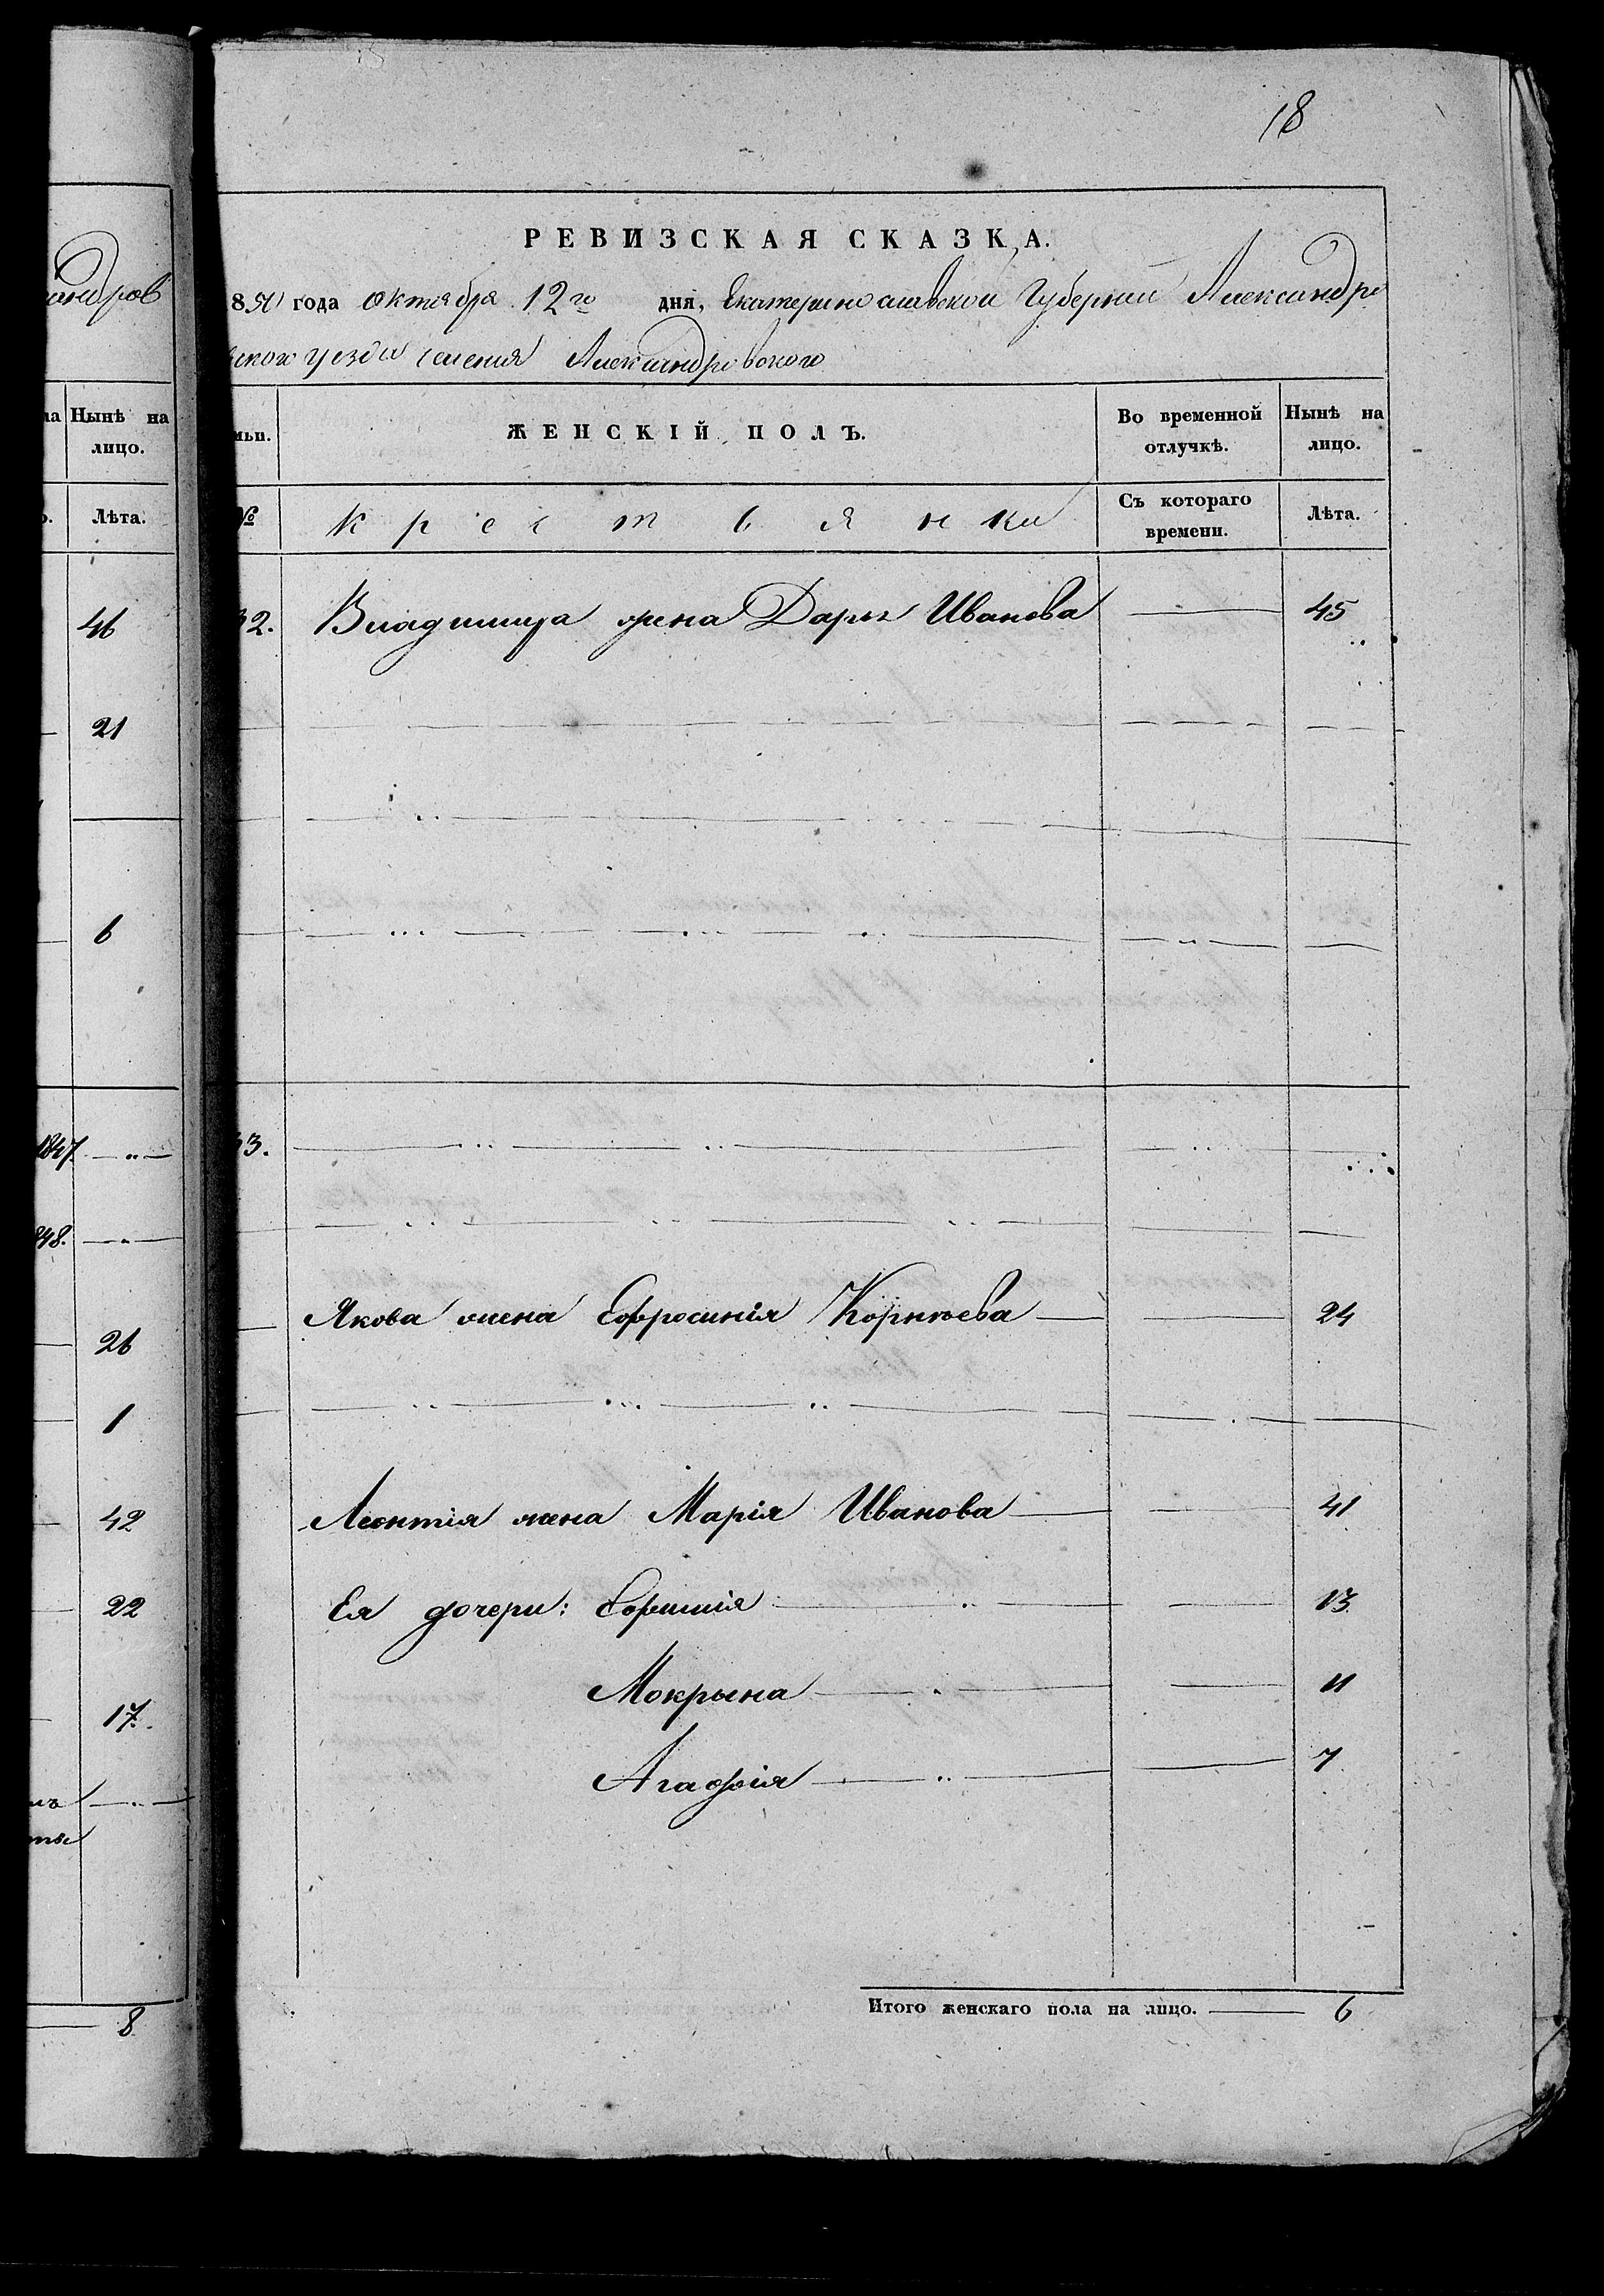 18
РЕВИЗСКАЯ СКАЗКА.
850 года Октября 12го дня, Екатеринославской Губернии Александро
вского уезда селения Александровского
ЖЕНСКІЙ ПОЛЪ.
Во временной отлучкѣ.
Нынѣ на лицо.
№
крестьянки
Съ котораго времени.
Лѣта.
32. Владимира жена Дарья Иванова — 45
33.
Якова жена Ефросинія Корнѣева — 24
Леонтія жена Марія Иванова — 41
Ея дочери: — 13
Мокрына — 11
Агафія — 7
Итого женскаго пола на лицо. — 6
Нынѣ на
лицо.
Лѣта.
46
21
6
1847.
848.
26
1
42
22
17.
8